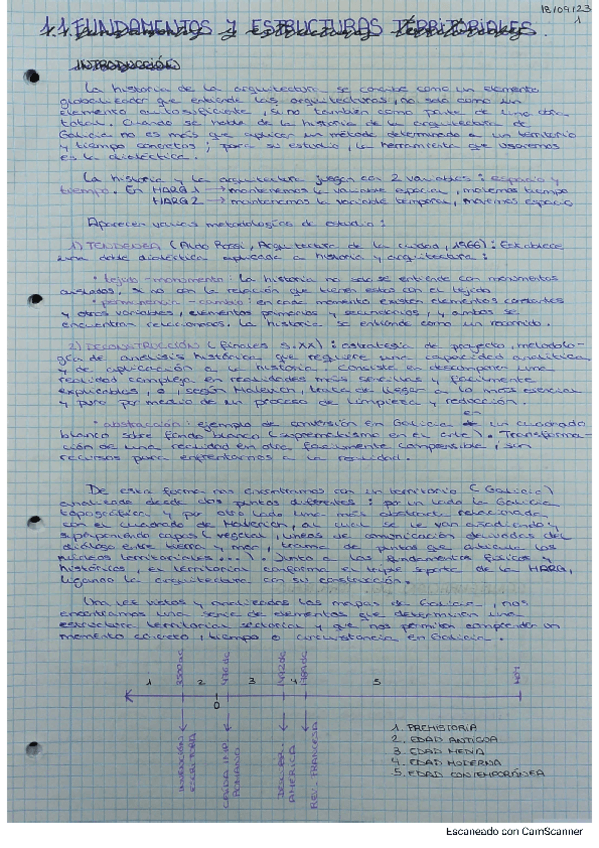 18/09/23
1
1.1. FUNDAMENTOS y ESTRUCTURAS TERRITORIALES.
INTRODUCCIÓN
La historia de la arquitectura se concibe como un elemento
globalizador que entiende las arquitecturas, no solo como un
elemento autosuficiente, si no también como parte de una obra
total. Cuando se habla de la historia de la arquitectura de
Galicia no es más que aplicar un método determinado a un territorio
y tiempo concretos; para su estudio, la herramienta que usaremos
es la dialéctica.
La historia y la arquitectura juegan con 2 variables: espacio y
tiempo. En HARG 1 → mantenemos la variable espacial, movemos tiempo
HARG 2 → mantenemos la variable temporal, movemos espacio
Aparecen varias metodologías de estudio:
1) TENDENZA (Aldo Rossi, Arquitectura de la ciudad, 1966): Establece
una doble dialéctica aplicada a historia y arquitectura:
• tejido - monumento: La historia no solo se entiende con monumentos
aislados, si no con la relación que tienen estos con el tejido
• permanencia - cambio: en cada momento existen elementos constantes
y otros variables, elementos primarios y secundarios, y ambos se
encuentran relacionados. La historia se entiende como un recorrido.
2) DECONSTRUCCIÓN (finales s.XX): estrategia de proyecto, metodolo-
gía de análisis histórico que requiere una capacidad analítica
y de aplicación a la historia. Consiste en descomponer una
realidad compleja en realidades más sencillas y fácilmente
explicables, o, según Malevich, trata de llegar a lo más esencial
y puro por medio de un proceso de limpieza y reducción.
• abstracción: ejemplo de conversión en Galicia en un cuadrado
blanco sobre fondo blanco (suprematismo en el arte). Transforma-
ción de una realidad en otra fácilmente comprensible, sin
recursos para enfrentarnos a la realidad.
De esta forma nos encontramos con un territorio (Galicia)
analizado desde dos puntos diferentes: por un lado la Galicia
topográfica y por otro lado una más abstracta relacionada
con el cuadrado de Malevich, al cual se le van añadiendo y
superponiendo capas (vegetal, líneas de comunicación derivadas del
diálogo entre tierra y mar, trama de puntos que articula los
núcleos territoriales...). Junto a los fundamentos físicos y
históricos, el territorial conforma el triple soporte de la HARG,
ligando la arquitectura con su construcción.
Una vez vistos y analizados los mapas de Galicia, nos
encontramos una serie de elementos que determinan una
estructura territorial sectorial y que nos permiten comprender un
momento concreto, tiempo o circunstancia en Galicia.
1 3500ac 2 0 476dc 3 1492dc 4 1789dc 5 HOY
INVENCIÓN ESCRITURA
CAÍDA IMP. ROMANO
DESCUBR. AMÉRICA
REV. FRANCESA
1. PREHISTORIA
2. EDAD ANTIGUA
3. EDAD MEDIA
4. EDAD MODERNA
5. EDAD CONTEMPORÁNEA
Escaneado con CamScanner